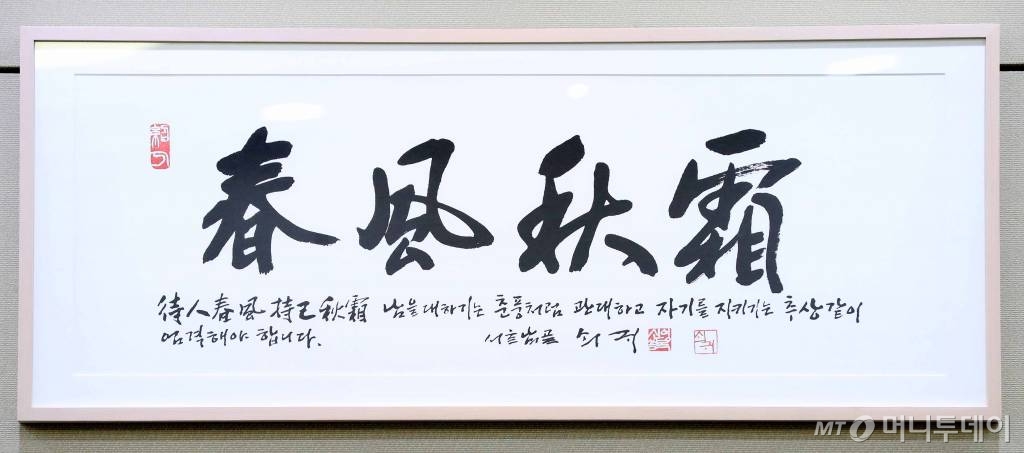 春風秋霜
待人春風 持己秋霜 남을 대하기는 춘풍처럼 관대하고 자기를 지키기는 추상같이
엄격해야 합니다.
MT 머니투데이